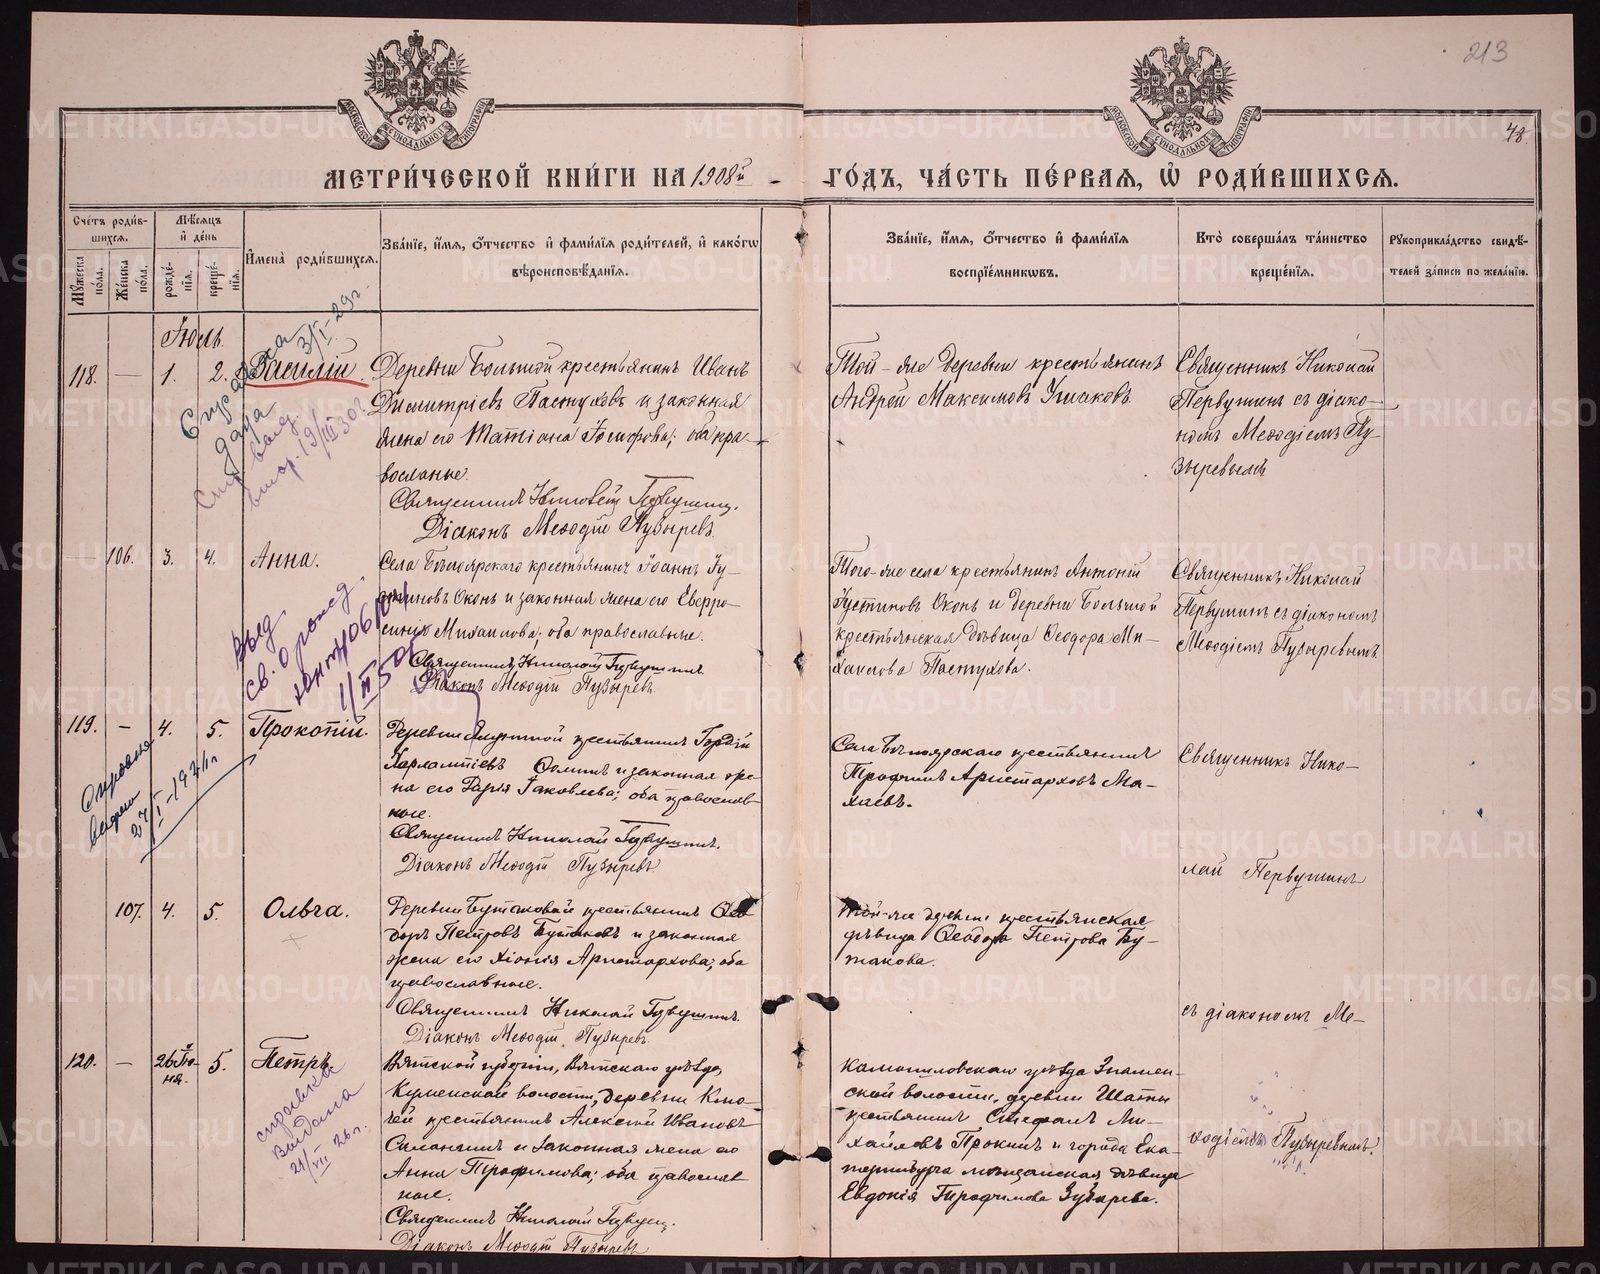 213
48.
МОСКОВСКОЙ СѴНОДАЛЬНОЙ ТИПОГРАФІИ
МОСКОВСКОЙ СѴНОДАЛЬНОЙ ТИПОГРАФІИ
МЕТРИ́ЧЕСКОЙ КНИ́ГИ НА 1908й ГО́ДЪ, ЧА́СТЬ ПЕ́РВАЯ, Ѡ РОДИ́ВШИХСЯ.
Сче́тъ роди́в-
шихся.
Мꙋ́жеска по́ла.
Же́нска по́ла.
Мѣ́сяцъ
и҆ де́нь
рожде́-
нїя.
креще́-
нїя.
И҆мена̀ роди́вшихся.
Зва́нїе, и҆́мя, ѻ҆́тчество и҆ фами́лїя роди́телей, и҆ како́гѡ
вѣроисповѣ́данїя.
Зва́нїе, и҆́мя, ѻ҆́тчество и҆ фами́лїя
воспрїе́мникѡвъ.
Кто̀ соверша́лъ та́инство
креще́нїя.
Рꙋкоприкла́дство свидѣ́-
телей за́писи по жела́нїю.
Іюль.
118. — 1. 2. Василій.
Деревни Большой крестьянинъ Иванъ
Димитріевъ Пастуховъ и законная
жена его Татіана Іосифова; оба пра-
вославные.
Священникъ Николай Первушинъ.
Діаконъ Меѳодій Пузыревъ.
Той-же деревни крестьянинъ
Андрей Максимовъ Ушаковъ.
Священникъ Николай
Первушинъ съ діако-
номъ Меѳодіемъ Пу-
зыревымъ
3/I-29г.
19/III 30г.
— 106. 3. 4. Анна.
Села Бѣлоярскаго крестьянинъ Іоаннъ Іу-
стиновъ Оконъ и законная жена его Евфро-
синія Михаилова; оба православные.
Священникъ Николай Первушинъ.
Діаконъ Меѳодій Пузыревъ.
Того-же села крестьянинъ Антоній
Іустиновъ Оконъ и деревни Большой
крестьянская дѣвица Ѳеодора Ми-
хаилова Пастухова.
Священникъ Николай
Первушинъ съ діакономъ
Меѳодіемъ Пузыревымъ.
Выд.
св. о рожд.
119. — 4. 5. Прокопій.
Деревни крестьянинъ Гордій
Харлампіевъ Ѳоминъ и законная же-
на его Дарія Іаковлева; оба православ-
ные.
Священникъ Николай Первушинъ.
Діаконъ Меѳодій Пузыревъ
Села Бѣлоярскаго крестьянинъ
Трофимъ Аристарховъ Ма-
хаевъ.
Священникъ Нико-
лай Первушинъ
Справка
выдана
27/I-1941г
107. 4. 5. Ольга.
Деревни Бутаковой крестьянинъ Ѳео-
доръ Петровъ Бутаковъ и законная
жена его Хіонія Аристархова; оба
православные.
Священникъ Николай Первушинъ.
Діаконъ Меѳодій Пузыревъ.
Той-же деревни крестьянская
дѣвица Ѳеодора Петрова Бу-
такова.
съ діакономъ Ме-
120. — 26 Ію-
ня. 5. Петръ.
Вятской губерніи, Вятскаго уѣзда,
Куменской волости, деревни Клю-
чей крестьянинъ Алексій Ивановъ
и законная жена его
Анна Трофимова; оба православ-
ные.
Священникъ Николай Первуш.
Діаконъ Меѳодій Пузыревъ
Камышловскаго уѣзда Знамен-
ской волости, деревни Шаты
крестьянинъ Стефанъ Ми-
хайловъ Прокинъ и города Ека-
теринбурга мѣщанская дѣвица
Евдокія Трофимова Зубарева.
ѳодіемъ Пузыревымъ.
справка
выдана
21/VII 26г.
METRIKI.GASO-URAL.RU